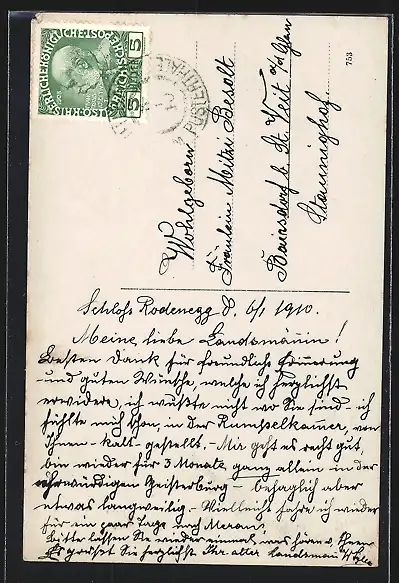 5
HELLER
5
PUSTERTHAL
753
Wohlgeborn
Fräulein Mitzi Besolt
Baiersdorf b. St. Veit a/d Glan
Stannighof.
Schloss Rodenegg d. 6/1 1910.
Meine liebe Landsmännin!
Besten Dank für freundliche Erinnerung
und guten Wünsche, welche ich herzlichst
erwidere, ich wußte nicht wo Sie sind - ich
fühlte mich schon, in der Rumpelkammer, von
Ihnen - kalt - gestellt. - Mir geht es recht gut
bin wieder für 3 Monate, ganz allein in der
ehrwürdigen Geisterburg - behaglich aber
etwas langweilig. - Vielleicht fahre ich wieder
für ein paar Tage nach Meran.
Bitte lassen Sie wieder einmal was hören v. Ihnen
Es grüsst Sie herzlichst Ihr alter Landsmann